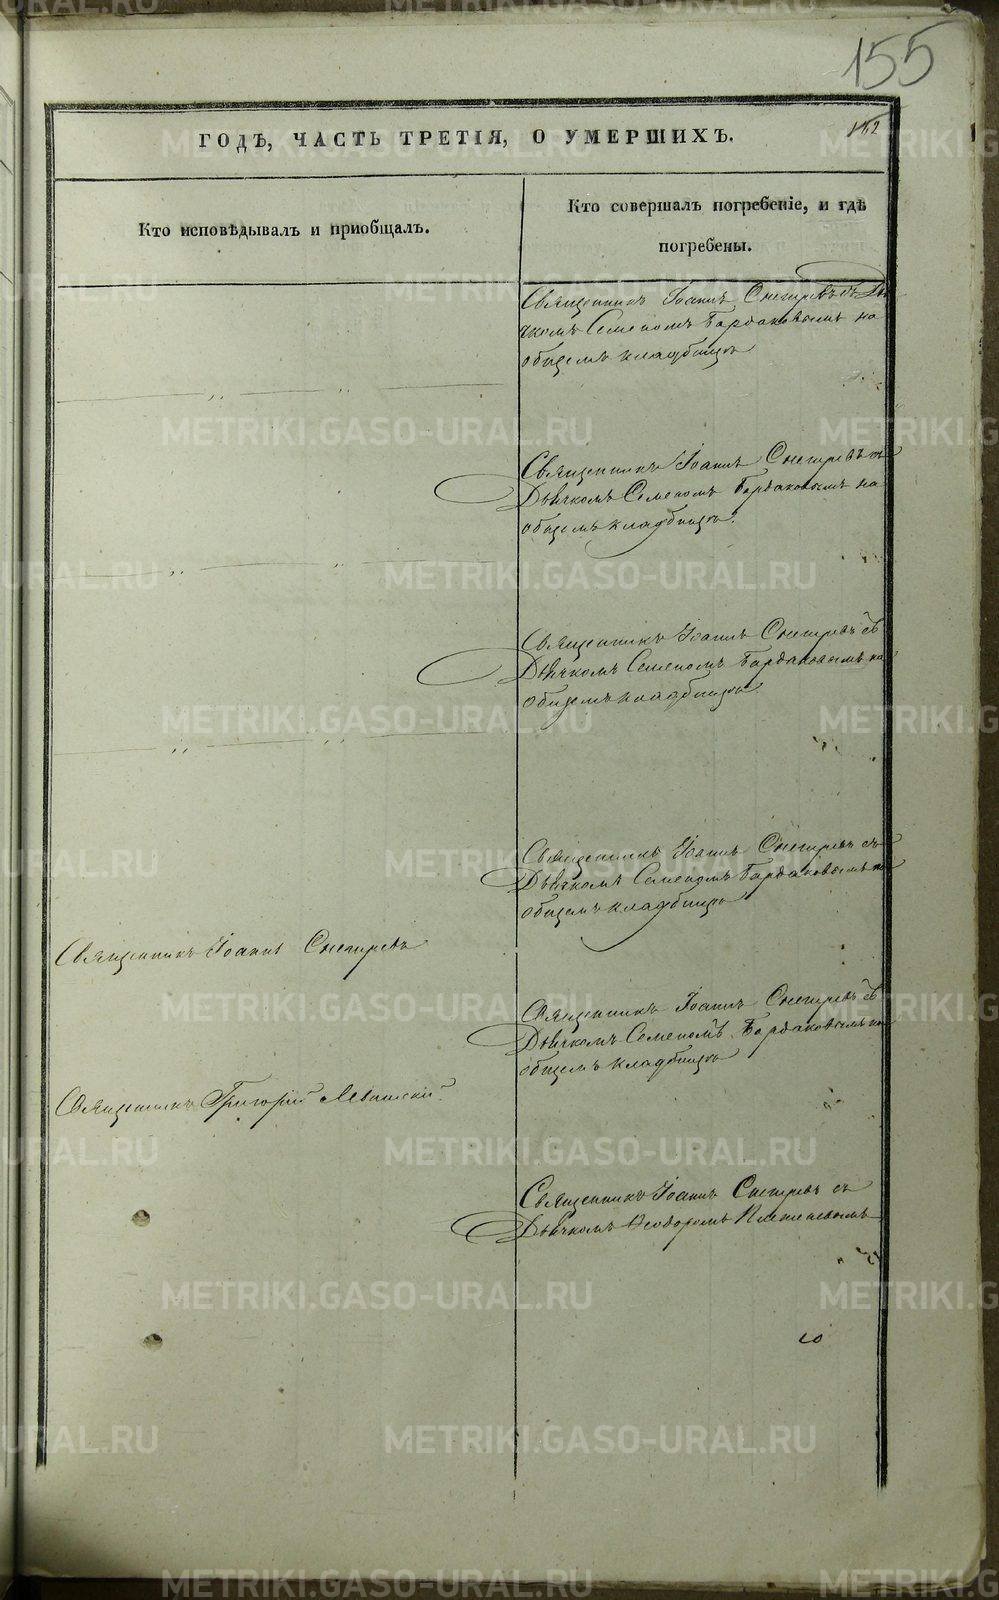 155
152
ГОДѢ, ЧАСТЬ ТРЕТІЯ, О УМЕРШИХЪ.
Кто исповѣдывалъ и пріобщалъ.
Кто совершалъ погребеніе, и гдѣ
погребены.
Священникъ Іоаннъ Снегиревъ съ Дья
чкомъ Семеномъ Бардаковымъ на
общемъ кладбищѣ
Священникъ Іоаннъ Снегиревъ съ
Дьячкомъ Семеномъ Бардаковымъ на
общемъ кладбищѣ.
Священникъ Іоаннъ Снегиревъ съ
Дьячкомъ Семеномъ Бардаковымъ на
общемъ кладбищѣ
Священникъ Іоаннъ Снегиревъ съ
Дьячкомъ Семеномъ Бардаковымъ на
общемъ кладбищѣ
Священникъ Іоаннъ Снегиревъ
Священникъ Іоаннъ Снегиревъ съ
Дьячкомъ Семеномъ Бардаковымъ на
общемъ кладбищѣ
Священникъ Григорій Левитскій.
Священникъ Іоаннъ Снегиревъ съ
Дьячкомъ Ѳеодоромъ
METRIKI.GASO-URAL.RU